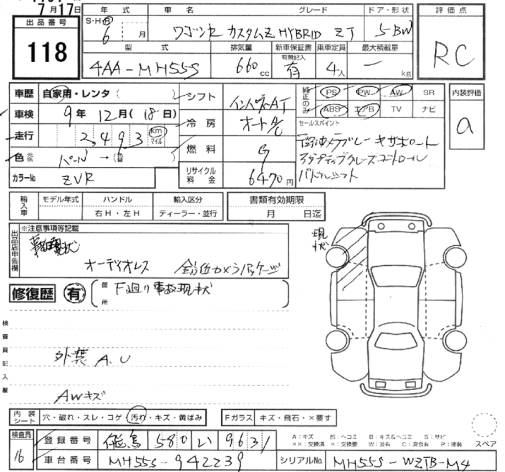 7月17日
出品番号 S・H・R 年 車名 グレード ドア・形状 評価点
118
6 月 ワゴンR カスタムZ HYBRID ZT 5-BW RC
型式 排気量 新車保証書 乗車定員 最大積載量
4AA-MH55S 660cc 有 4人 kg
車歴 自家用・レンタ シフト インパネAT PS PW AW SR 内装評価
車検 9年 12月(18日) 冷房 オートAC ABS エアB TV ナビ a
走行 2,493 Km マイル セールスポイント
色 パール 燃料 ガ
アダプティブクルーズコントロール
パドルシフト
カラーNo ZVR リサイクル料金 6470円
輸入車 モデル年式 ハンドル 輸入区分 書類有効期限
右H・左H ディーラー・並行 月 日迄
出品店申告欄 ※注意事項等記載 現状
オーディオレス 全方位カメラパッケージ
修復歴 有 箇所 F廻り事故現状
検査員記入欄
外装 A.U
AWキズ
内装シート 穴・破れ・スレ・コゲ・汚れ・キズ・黄ばみ Fガラス キズ・飛石・×要す
検査員 16 登録番号 580 い 9631
車台番号 MH55S-942239 シリアルNo MH55S-WZTB-M4
スペア